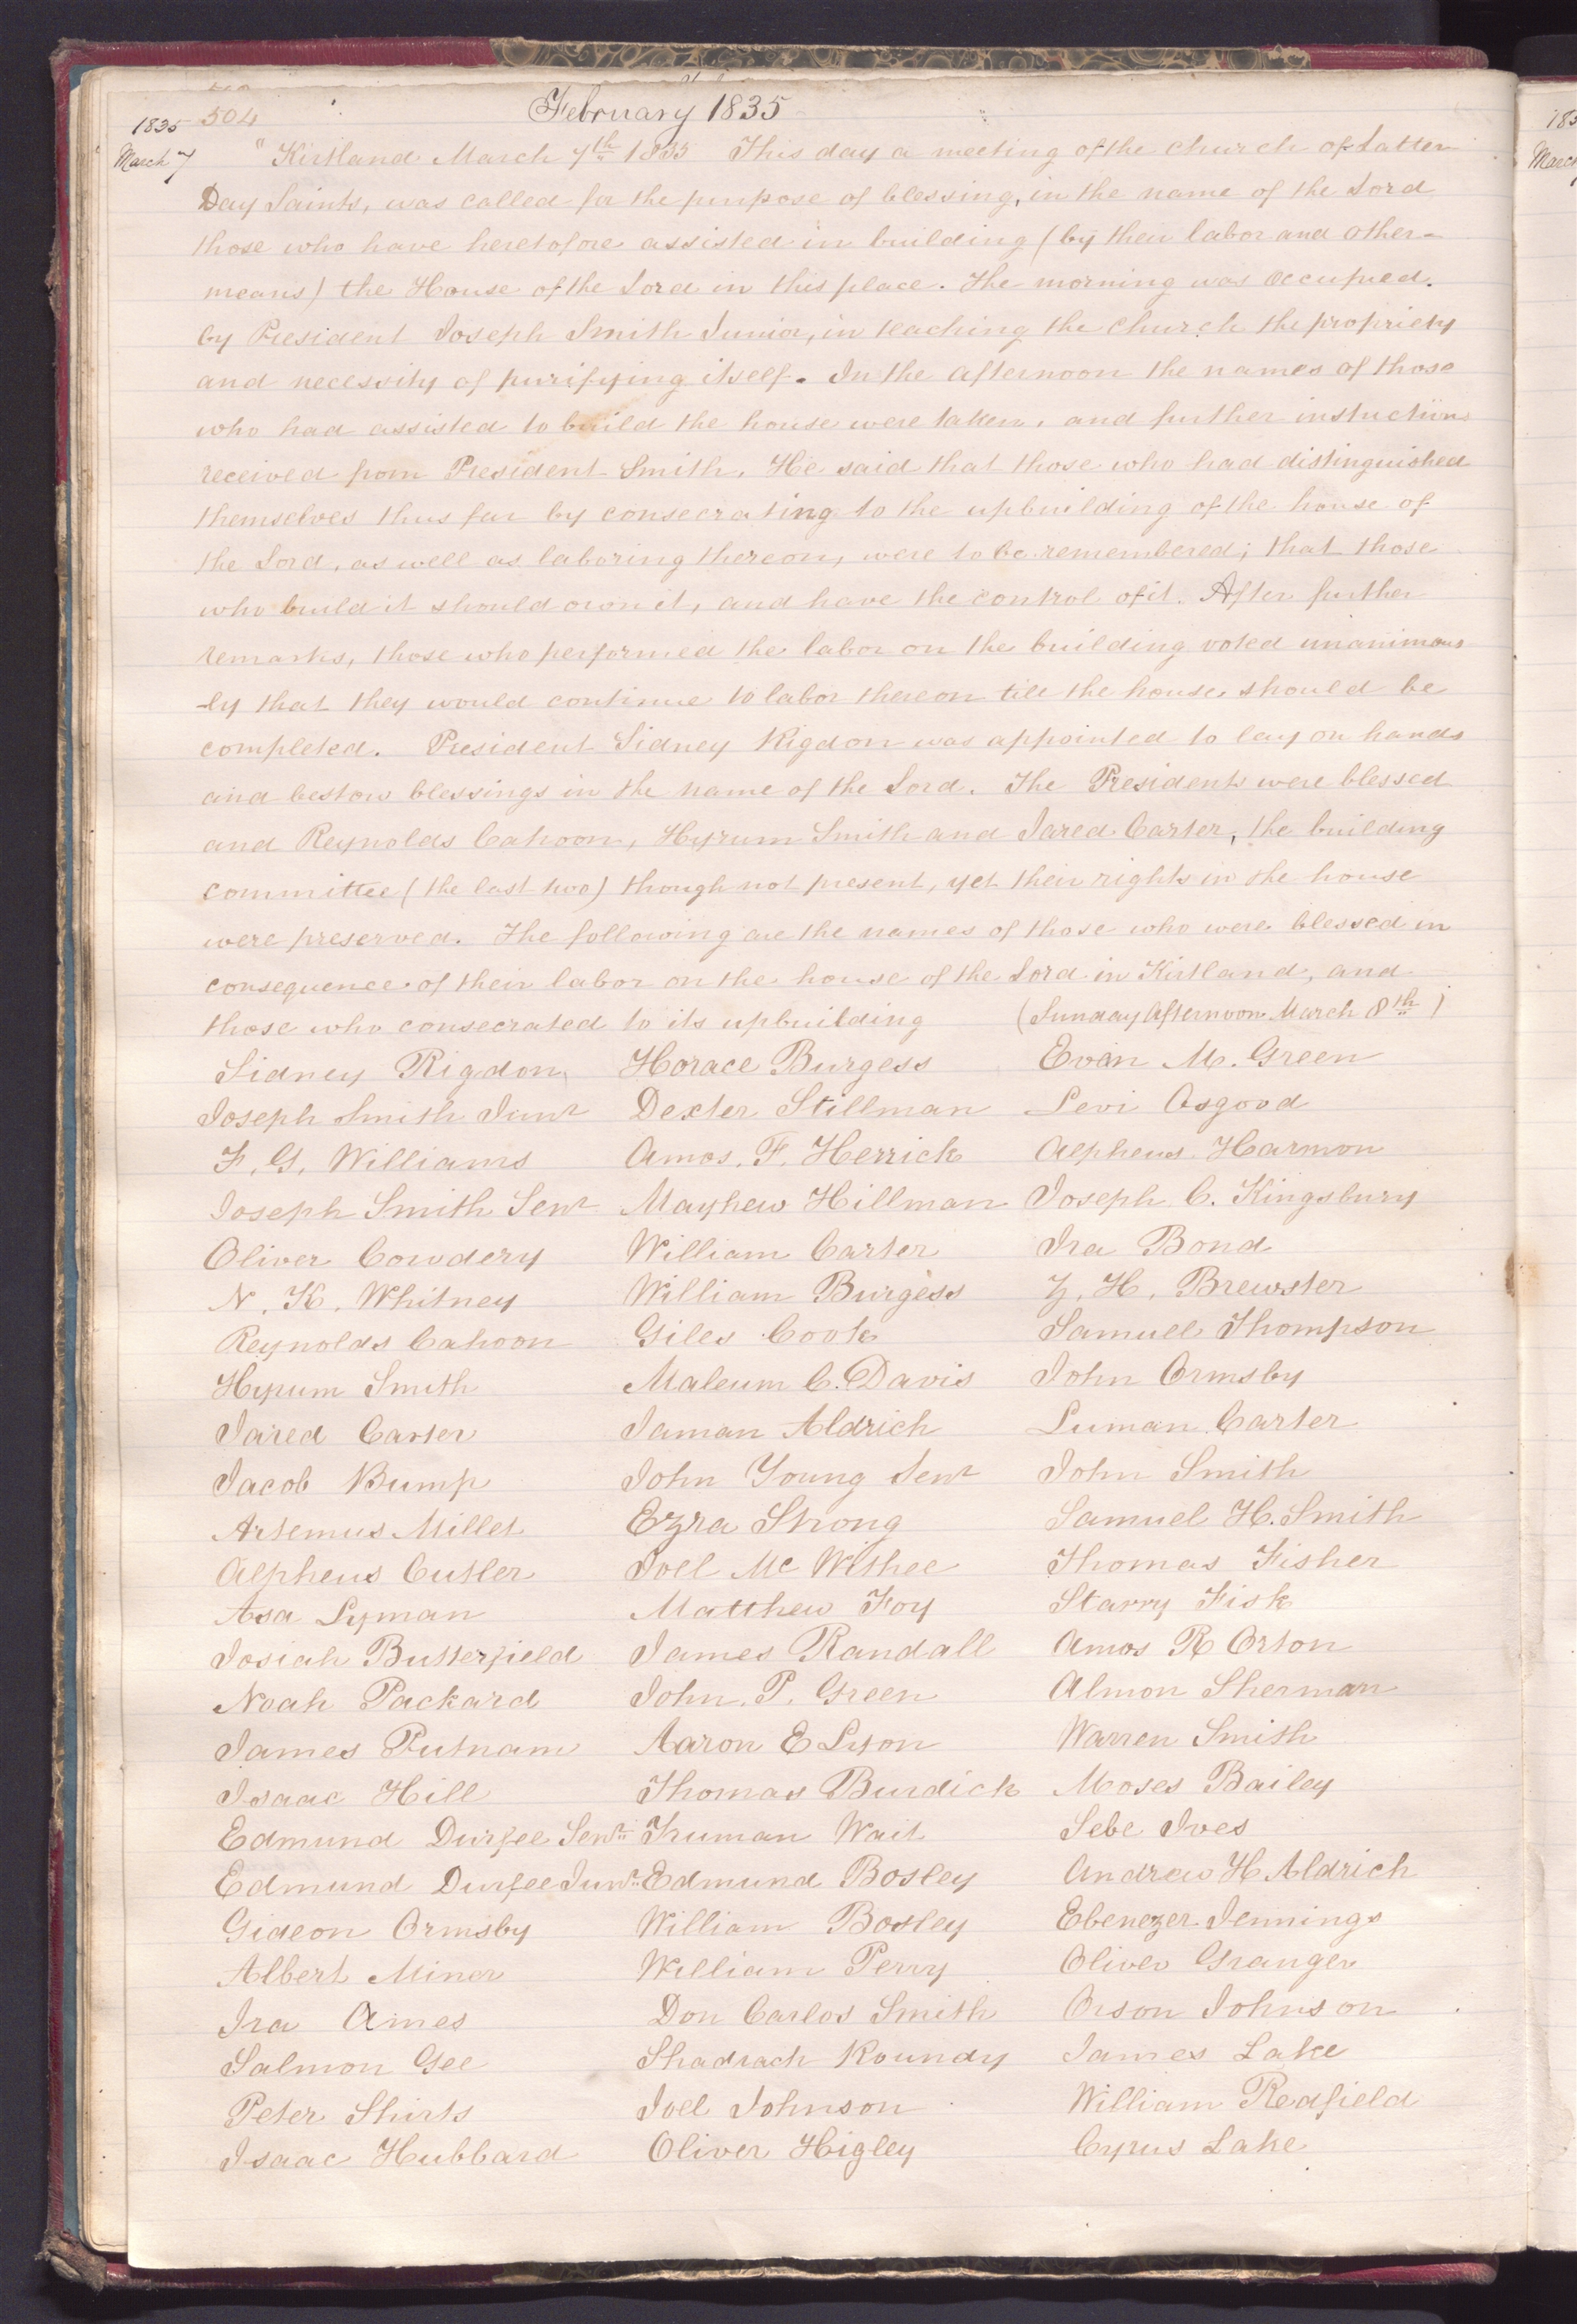 504
February 1835
1835
March 7
" Kirtland March 7th 1835 This day a meeting of the church of Latter
Day Saints, was called for the purpose of blessing, in the name of the Lord
those who have heretofore assisted in building (by their labor and other-
means) the House of the Lord in this place. The morning was occupied.
by President Joseph Smith Junior, in teaching the church the propriety
and necessity of purifying itself. In the afternoon the names of those
who had assisted to build the house were taken, and further instuctions
received from President Smith. He said that those who had distinguished
themselves thus far by consecrating to the upbuilding of the house of
the Lord, as well as laboring thereon, were to be remembered; that those
who build it should own it, and have the control of it. After further
remarks, those who performed the labor on the building voted unanimous
-ly that they would continue to labor thereon till the house should be
completed. President Sidney Rigdon was appointed to lay on hands
and bestow blessings in the name of the Lord. The Presidents were blessed
and Reynolds Cahoon, Hyrum Smith and Jared Carter, the building
committee (the last two) though not present, yet their rights in the house
were preserved. The following are the names of those who were blessed in
consequence of their labor on the house of the Lord in Kirtland, and
those who consecrated to its upbuilding (Sunday Afternoon March 8th)
Sidney Rigdon Horace Burgess Evan M. Green
Joseph Smith Junr Dexter Stillman Levi Osgood
F. G. Williams Amos. F. Herrick Alpheus Harmon
Joseph Smith Senr Mayhew Hillman Joseph C. Kingsbury
Oliver Cowdery William Carter Ira Bond
N. K. Whitney William Burgess Z. H. Brewster
Reynolds Cahoon Giles Cook Samuel Thompson
Hyrum Smith Malcum C. Davis John Ormsby
Jared Carter Jaman Aldrich Luman Carter
Jacob Bump John Young Senr John Smith
Artemus Millet Ezra Strong Samuel H. Smith
Alpheus Cutler Joel Mc Withee Thomas Fisher
Asa Lyman Matthew Foy Starry Fisk
Josiah Butterfield James Randall Amos R Orton
Noah Packard John. P. Green Almon Sherman
James Putnam Aaron E Lyon Warren Smith
Isaac Hill Thomas Burdick Moses Bailey
Edmund Durfee Senr Truman Wait Sebe Ives
Edmund Durfee Junr Edmund Bosley Andrew H Aldrich
Gideon Ormsby William Bosley Ebenezer Jennings
Albert Miner William Perry Oliver Granger
Ira Ames Don Carlos Smith Orson Johnson
Salmon Gee Shadrach Roundy James Lake
Peter Shirts Joel Johnson William Redfield
Isaac Hubbard Oliver Higley Cyrus Lake